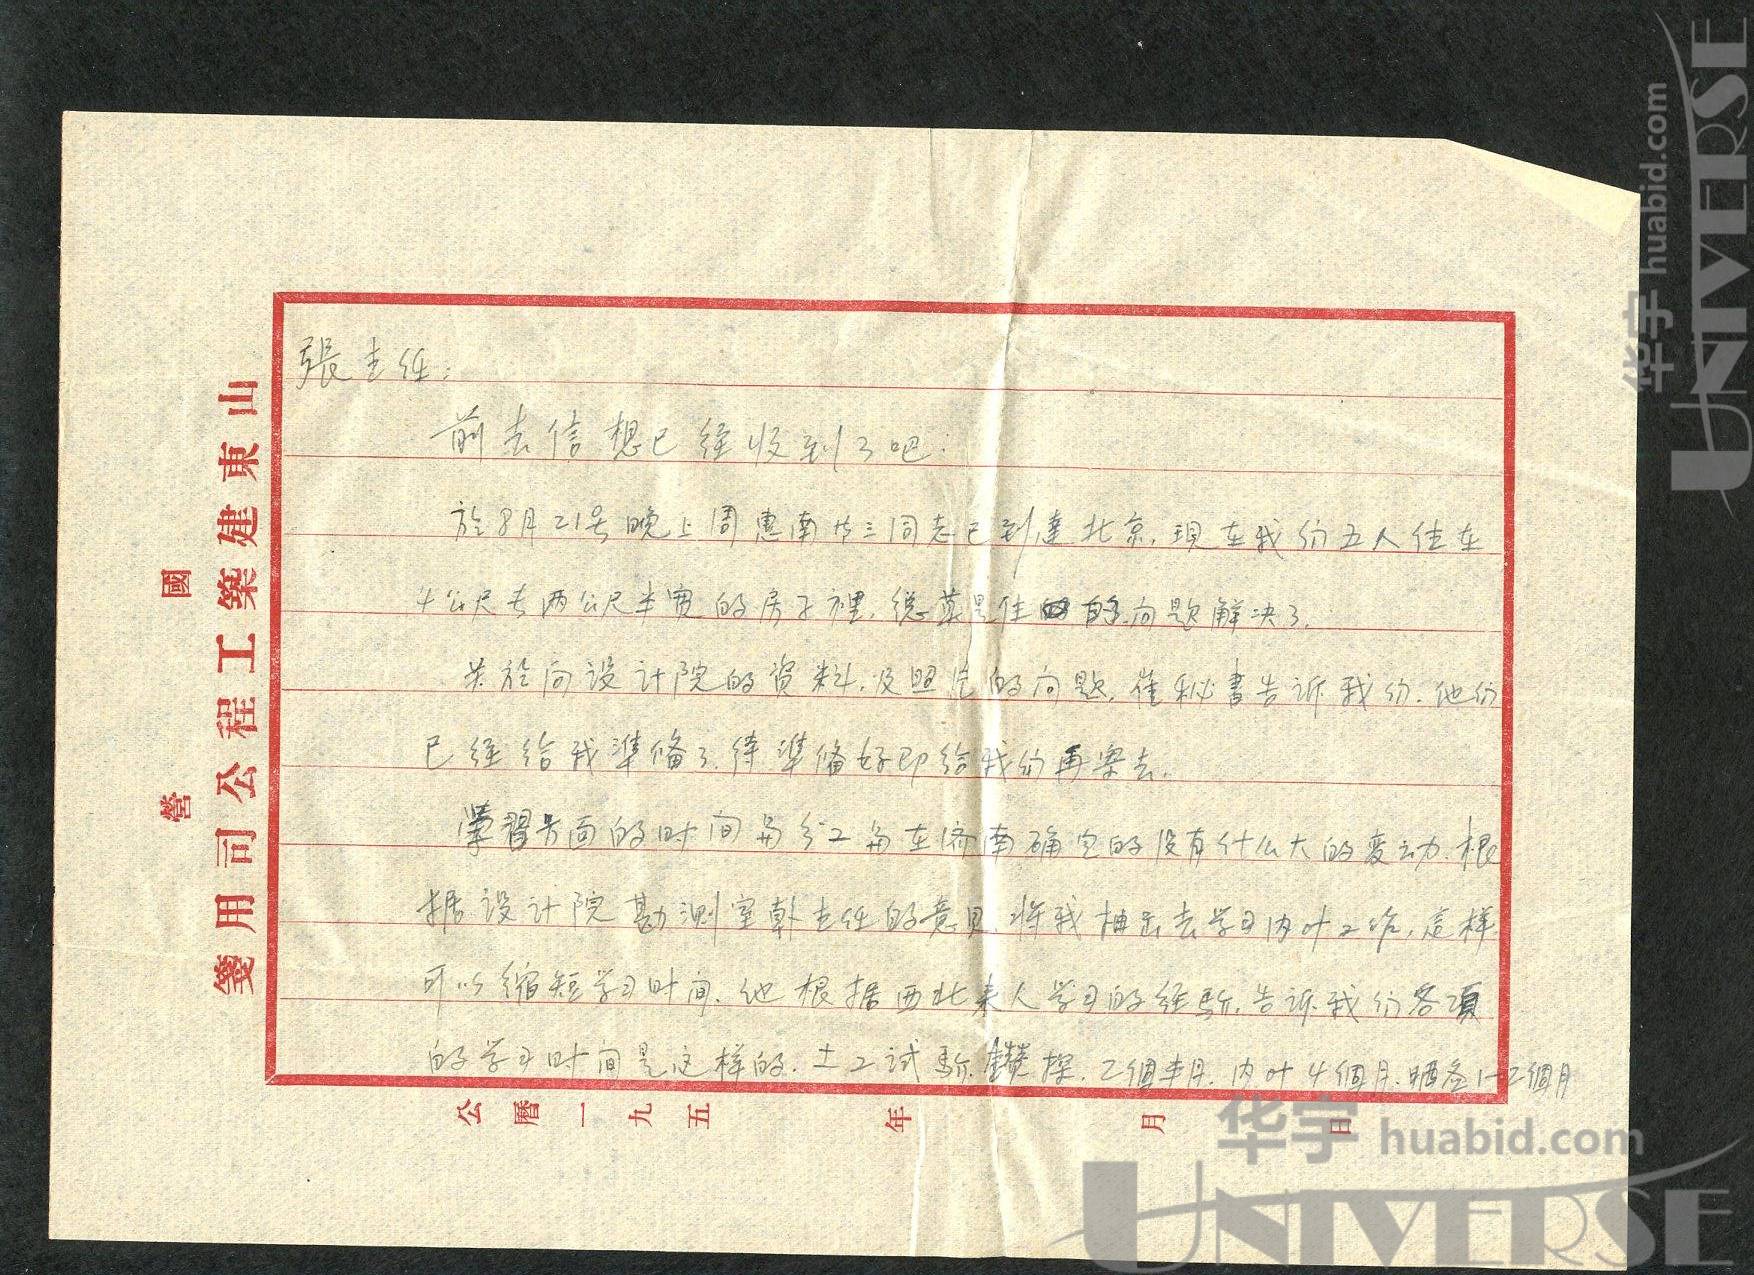 國營
山東建築工程公司用箋
張主任:
前去信想已经收到了吧:
於8月21号晚上周惠南廿三同志已到達北京,現在我们五人住在
4公尺长两公尺半宽的房子裡,總算是住的问题解决了.
关於向设计院的资料,及照片的问题,崔秘書告诉我们.他们
已经给我準備了,待準備好即给我们再寄去.
学習方面的时间与分工与在济南确定的没有什么大的变动.根
据设计院勘测室韩主任的意见,将我抽出去学习内叶工作,這样
可以缩短学习时间.他根据西北来人学习的经驗,告诉我们各項
的学习时间是这样的.土工试驗,鑚探,2個半月,内叶4個月.晒鱼1—2個月
公曆一九五 年 月 日
华宇 huabid.com
UNIVERSE
华宇 huabid.com
UNIVERSE